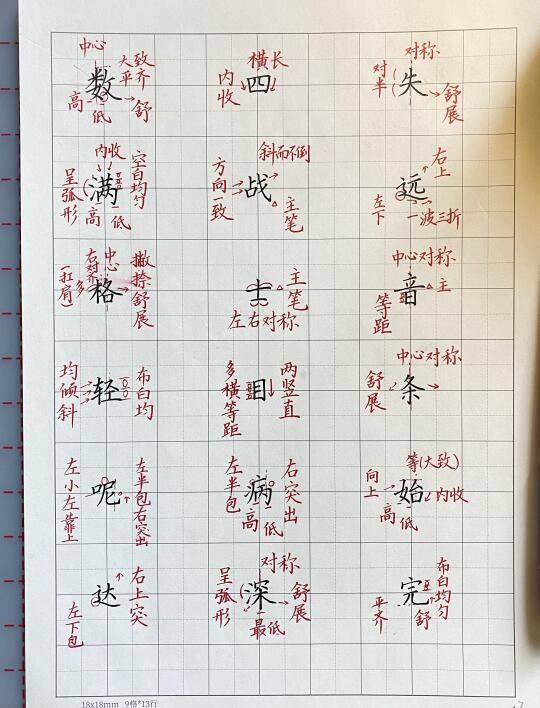 中心
大致
平齐
数
高
低
舒
横长
内收
四
对称
对半
失
舒展
内收
空白均匀
呈弧形
满
高
低
斜而不倒
方向一致
战
主笔
右上
远
左下
一波三折
中心
右对齐
撇捺舒展
(扛肩)
多
格
士
主笔
左右对称
中心对称
音
主
等距
均倾斜
轻
布白均
多横等距
目
两竖直
中心对称
舒展
条
左小左靠上
呢
左半包右突出
左半包
病
右突出
高
低
等(大致)
向上
始
内收
高
低
达
右上突
左下包
对称
呈弧形
深
舒展
最低
布白均匀
完
平齐
舒
18x18mm 9格*13行